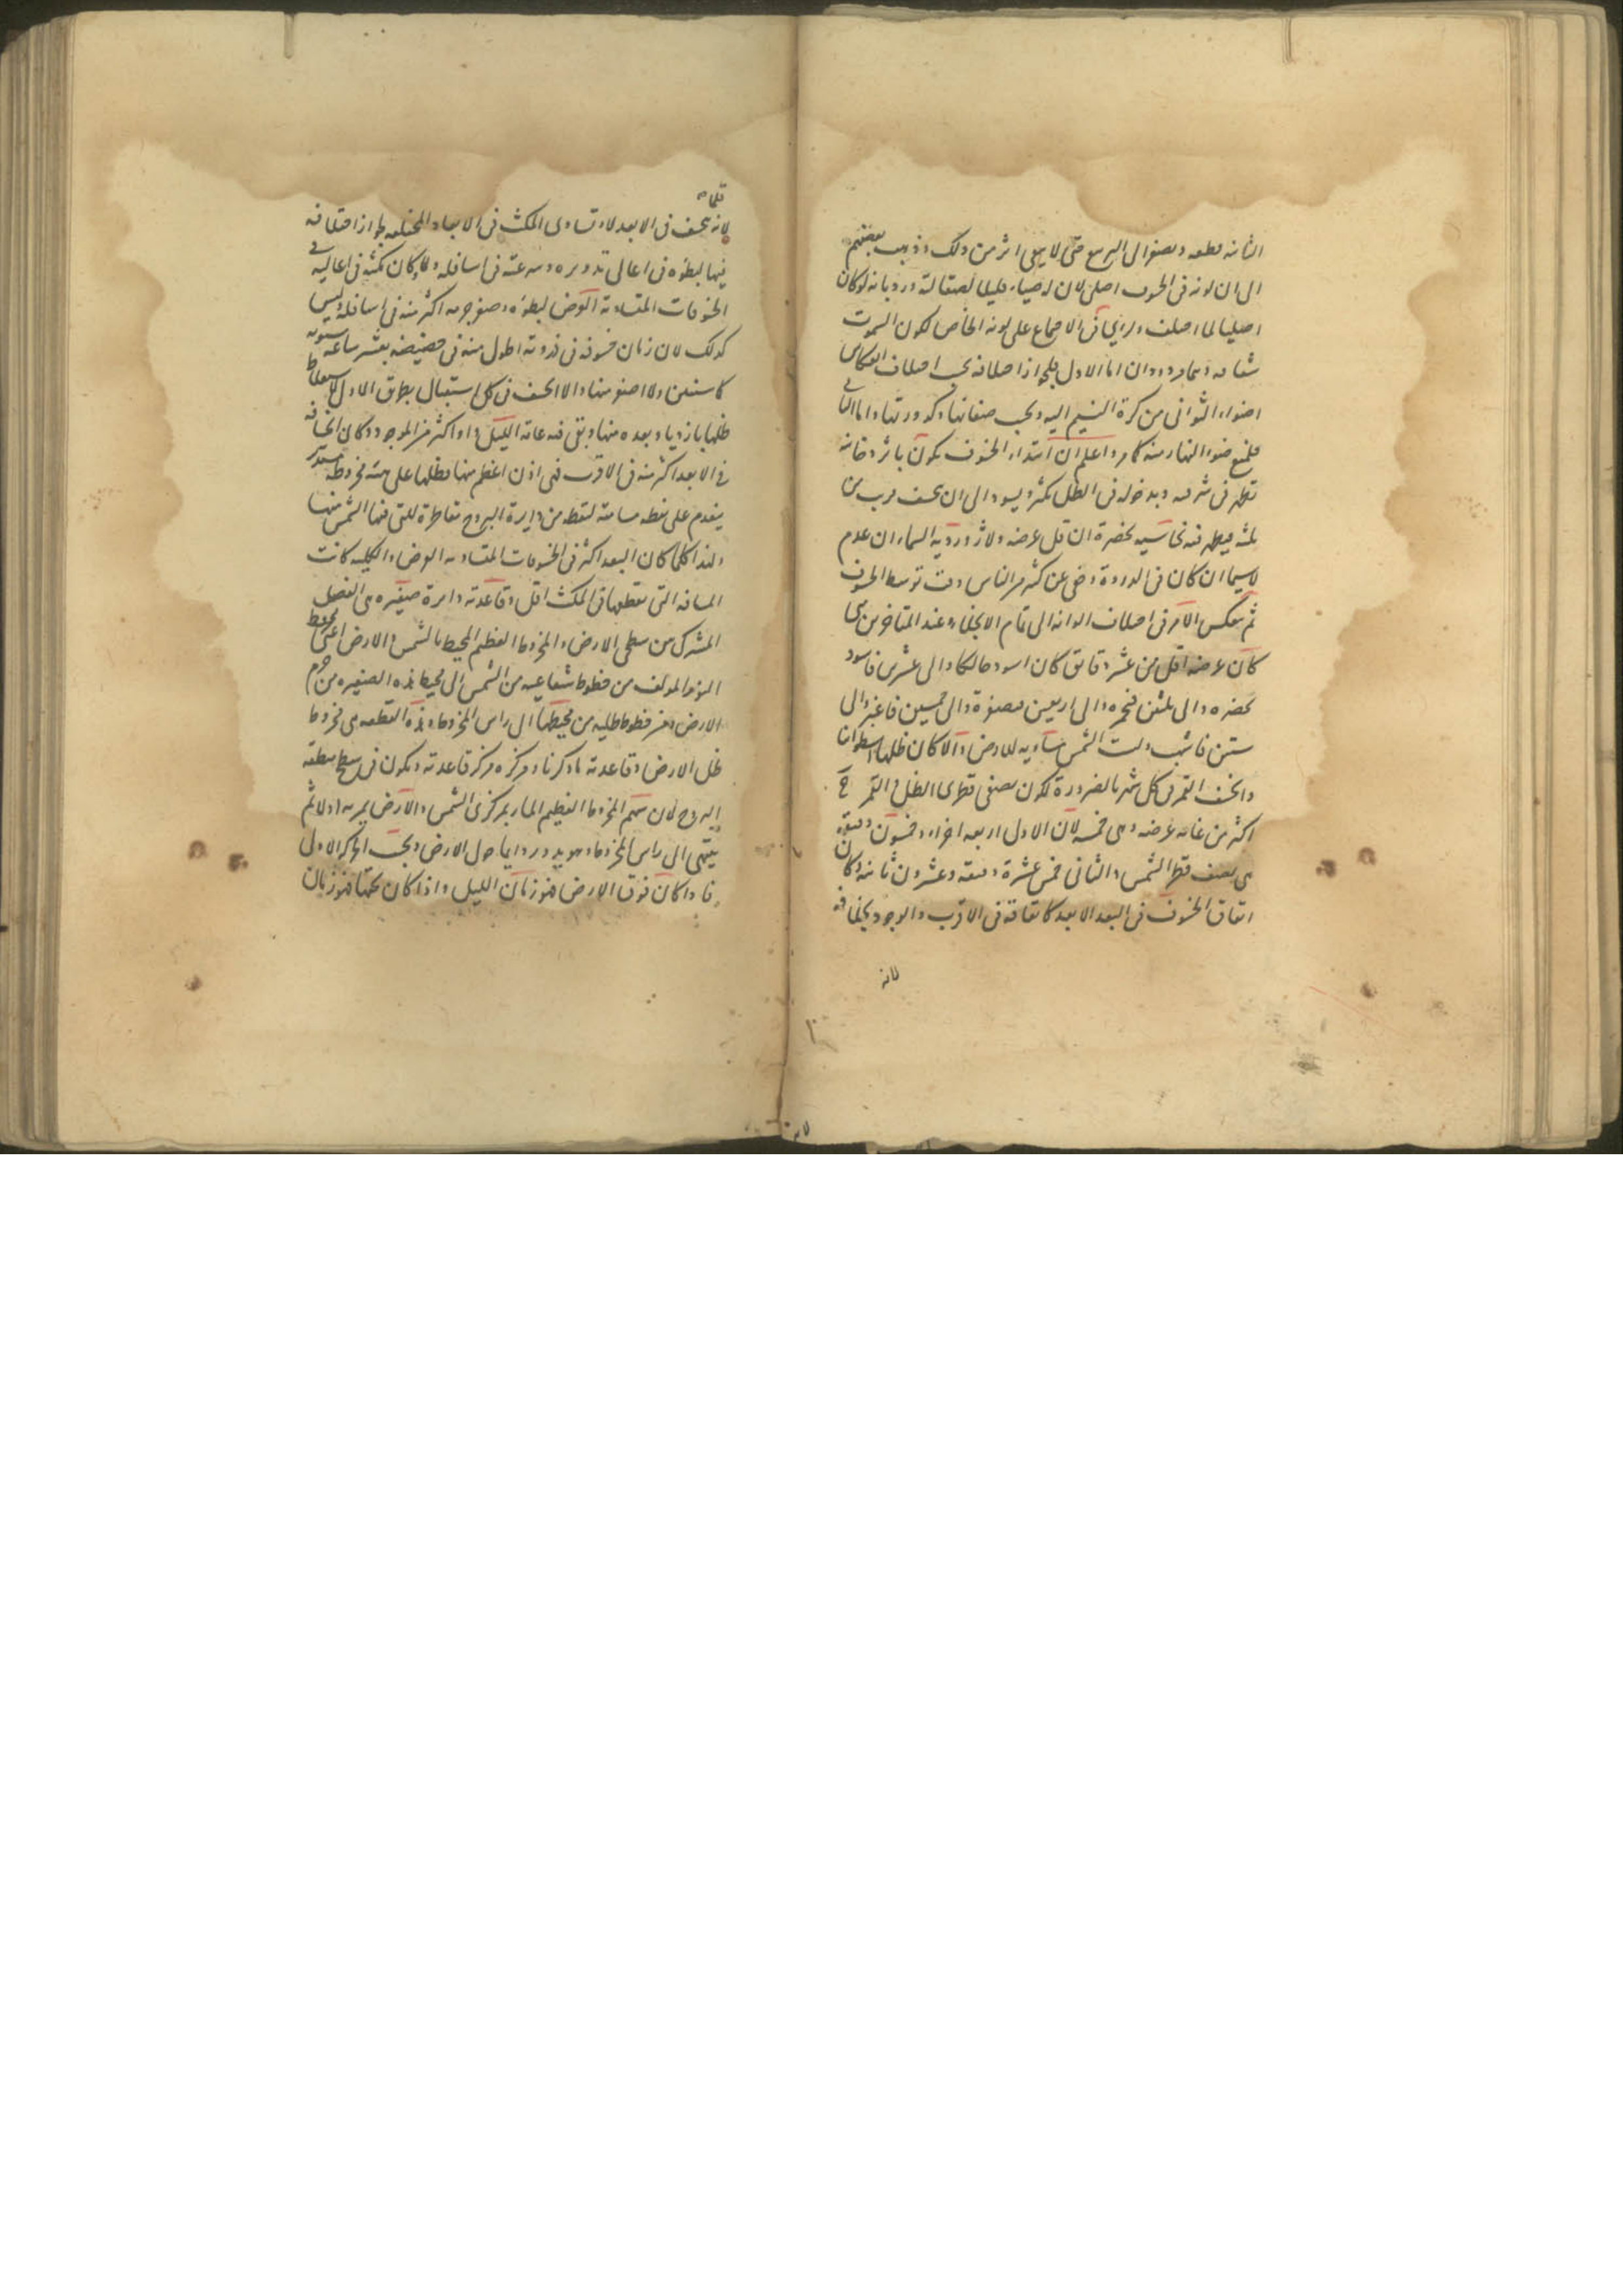 الثانية قطعه ويصفو الى التربيع حتى لا يبقى اثر من ذلك وذهب بعضهم
الى ان لونه فى الخسوف اصلى لان له ضياء قليلا لصقالته ورد بانه لو كان
اصليا لما اختلف ولرأى فى الاجماع على لونه الخاص لكون السموت
شفافه وهما مردودان اما الاول فلجواز اختلافه بحسب اختلاف انعكاس
اضواء الثوانى من كرة النسيم اليه وبحسب صفائها وكدورتها واما الثانى
فلمنع ضوء النهار منه كما مر واعلم ان ابتداء الخسوف يكون باثر دخانيه
تظهر فى شرقيه وبدخوله فى الظل يكثر ويسود الى ان ينخسف قريب من
ثلثه فيظهر فيه نحاسيه بخضرة ان قل عرضه ولازوردية السماء ان عدم
لاسيما ان كان فى الذروة وخفى عن كثير من الناس وقت توسط الخسوف
ثم ينعكس الامر فى اختلاف الوانه الى تمام الانجلاء وعند المتأخرين متى
كان عرضه اقل من عشر دقايق كان اسود حالكا والى عشرين فاسود
بخضره والى ثلثين فبحمره والى اربعين بصفرة والى خمسين فاغبر والى
ستين فاشهب وليست الشمس مساويه للارض والا كان ظلها اسطوانيا
وانخسف القمر فى كل شهر بالضرورة لكون نصفى قطرى الظل والقمر ح
اكثر من غايه عرضه وهى خمسه لان الاول اربعه اجزاء وخمسون دقيقه
هى نصف قطر الشمس والثانى خمس عشرة دقيقه وعشرون ثانيه وكان
اتفاق الخسوف فى البعد الابعد كاتفاقه فى الاقرب والوجود بخلافه
لانه
قلما
لانه ينخسف فى الابعد لا وتساوى المكث فى الابعاد المختلفه لجواز اختلافه
فيها لبطؤه فى اعالى تدويره وسرعته فى اسافله ولا كان مكثه فى اعاليه فى
الخسوفات المتساوية العرض لبطؤه وصغر جرمه اكثر منه فى اسافله وليس
كذلك لان زمان خسوفه فى ذروته اطول منه فى حضيضه بعشر ساعه مستويه
كما ستعلم ولا اصغر منها والا انخسف فى كل استقبال بطريق الاولى لاستغلاظ
ظلها بازدياد بعده منها وبقى فيه عامه الليل او اكثر من الموجود وكان انخسافه
فى الابعد اكثر منه فى الاقرب فهى اذن اعظم منها وظلها على هيئة مخروط مستدير
ينعدم على نقطه مسامته لنقطه من دايرة البروج مقاطرة للتى فيها الشمس منها
ولهذا كلما كان البعد اكثر فى الخسوفات المتساويه العرض والكليه كانت
المسافه التى يقطعها فى المكث اقل وقاعدته دايرة صغيره هى الفصل
المشترك بين سطحى الارض والمخروط العظيم المحيط بالشمس والارض اعنى المخروط
المؤلف من خطوط شعاعيه من الشمس الى محيط هذه الصغيره من جرم
الارض ومن خطوط ظليه من محيطها الى راس المخروط وهذه القطعه هى مخروط
ظل الارض وقاعدته ما ذكرنا ومركزه مركز قاعدته ويكون فى سطح منطقه
البروج لان سهم المخروط العظيم المار بمركزى الشمس والارض يمر به اولا ثم
ينتهى الى راس المخروط وهو يدور دايما حول الارض وبحسب الحركه الاولى
فاذا كان فوق الارض فهو زمان الليل واذا كان تحتها فهو زمان